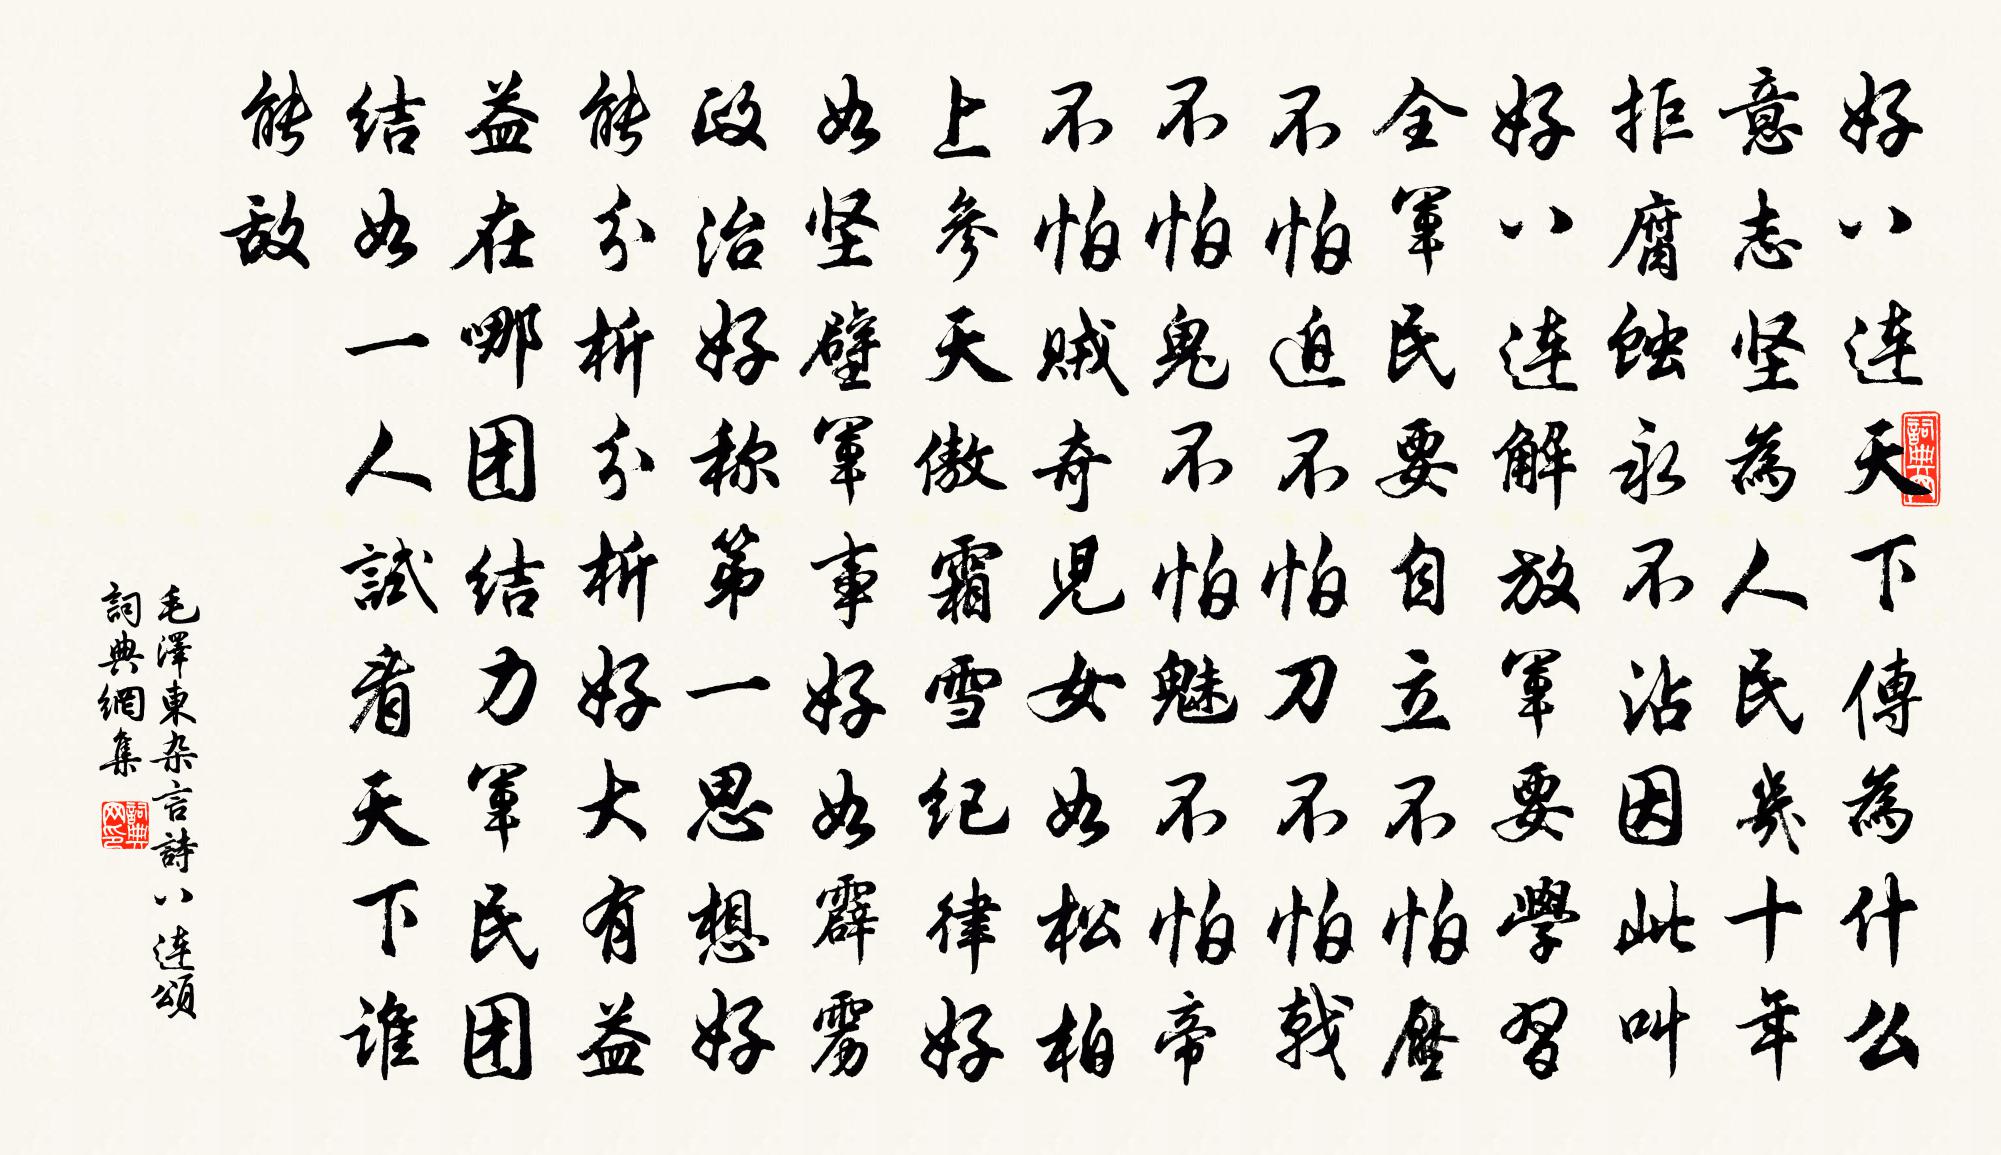 好八连天下傳為什么
意志坚為人民幾十年
拒腐蚀永不沾因此叫
好八连解放軍要學習
全軍民要自立不怕壓
不怕迫不怕刀不怕戟
不怕鬼不怕魅不怕帝
不怕贼奇児女如松柏
上參天傲霜雪纪律好
如坚壁軍事好如霹雳
政治好称第一思想好
能分析分析好大有益
益在哪团结力軍民团
结如一人試看天下谁
能敌
毛澤東杂言詩八连頌
詞典網集
詞典网
詞典网印